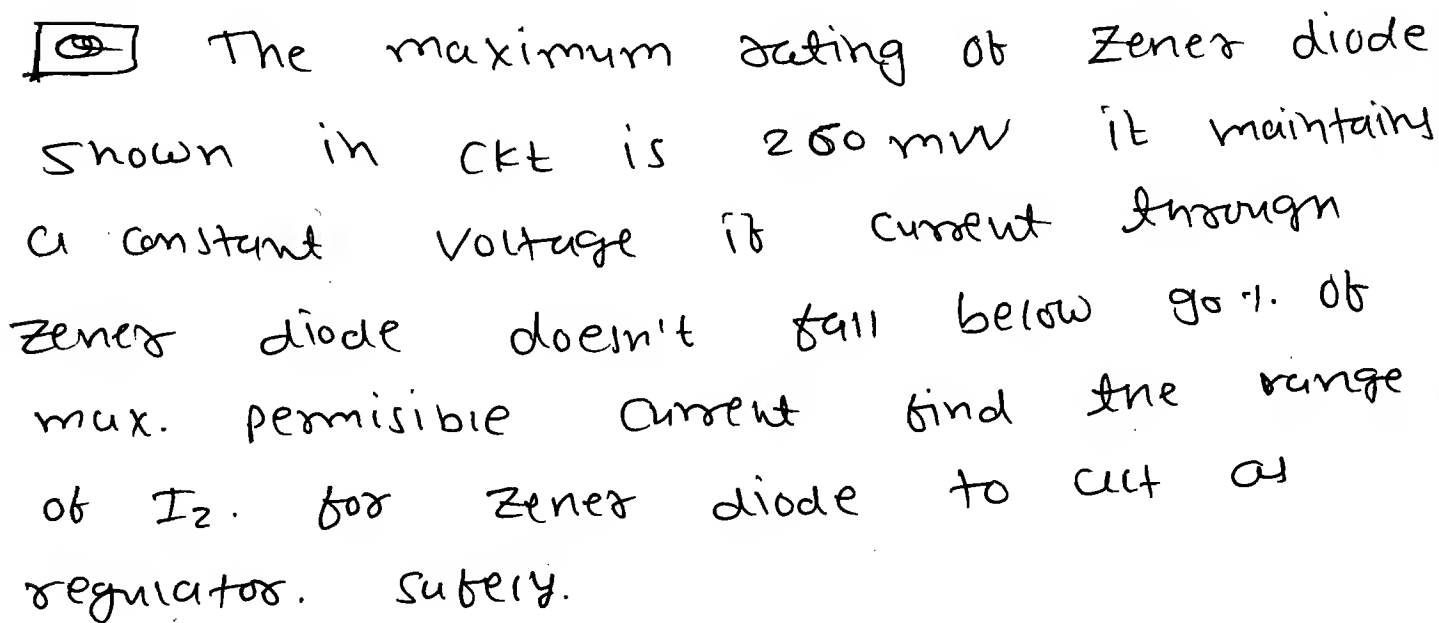 The maximum rating of Zener diode
shown in ckt is 250 mW it maintains
a constant voltage if current through
Zener diode doesn't fall below 90 %. of
max. permisible current find the range
of Iz. for Zener diode to act as
regulator. safely.